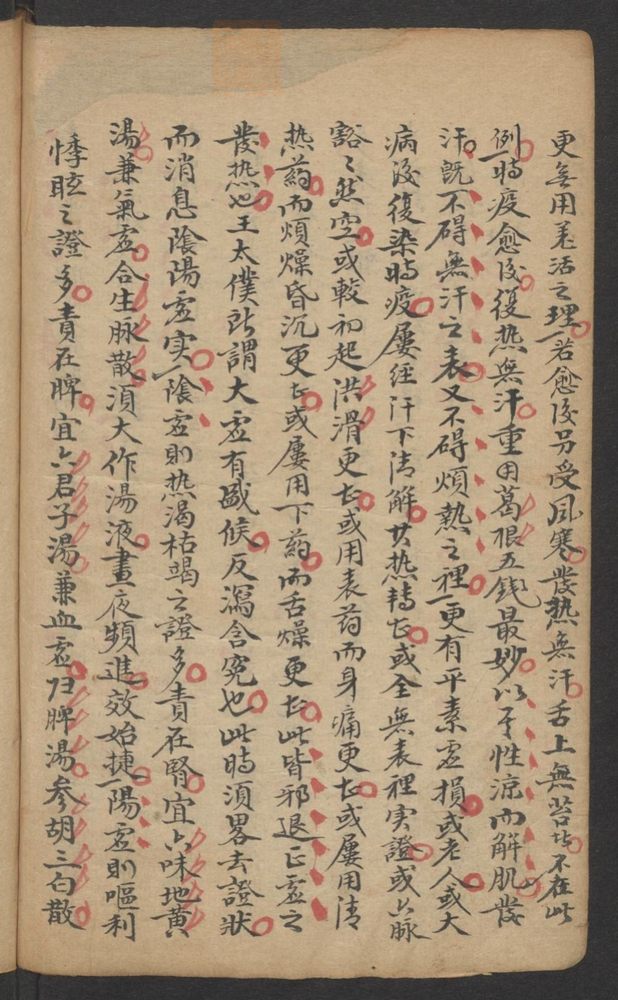 更無用羌活之理若愈後另受风寒發熱無汗舌上無苔者不在此
例一時疫愈後復热無汗重用葛根五錢最妙以其性涼而解肌發
汗既不碍無汗之表又不碍煩熱之裡一更有平素虛損或老人或大
病後復染時疫屢经汗下清解其热轉甚或全無表裡实證或六脉
豁々然空或較初起洪滑更甚或用表药而身痛更甚或屢用清
热药而煩燥昏沉更甚或屢用下药而舌燥更甚此皆邪退正虛之
發热也王太僕所謂大虛有盛候反瀉含冤也此時須畧去證狀
而消息陰陽虛实一陰虛則热渴枯竭之證多責在腎宜六味地黄
湯兼氣虛合生脉散須大作湯液晝夜頻進效始捷一陽虛則嘔利
悸眩之證多責在脾宜六君子湯兼血虛归脾湯参胡三白散